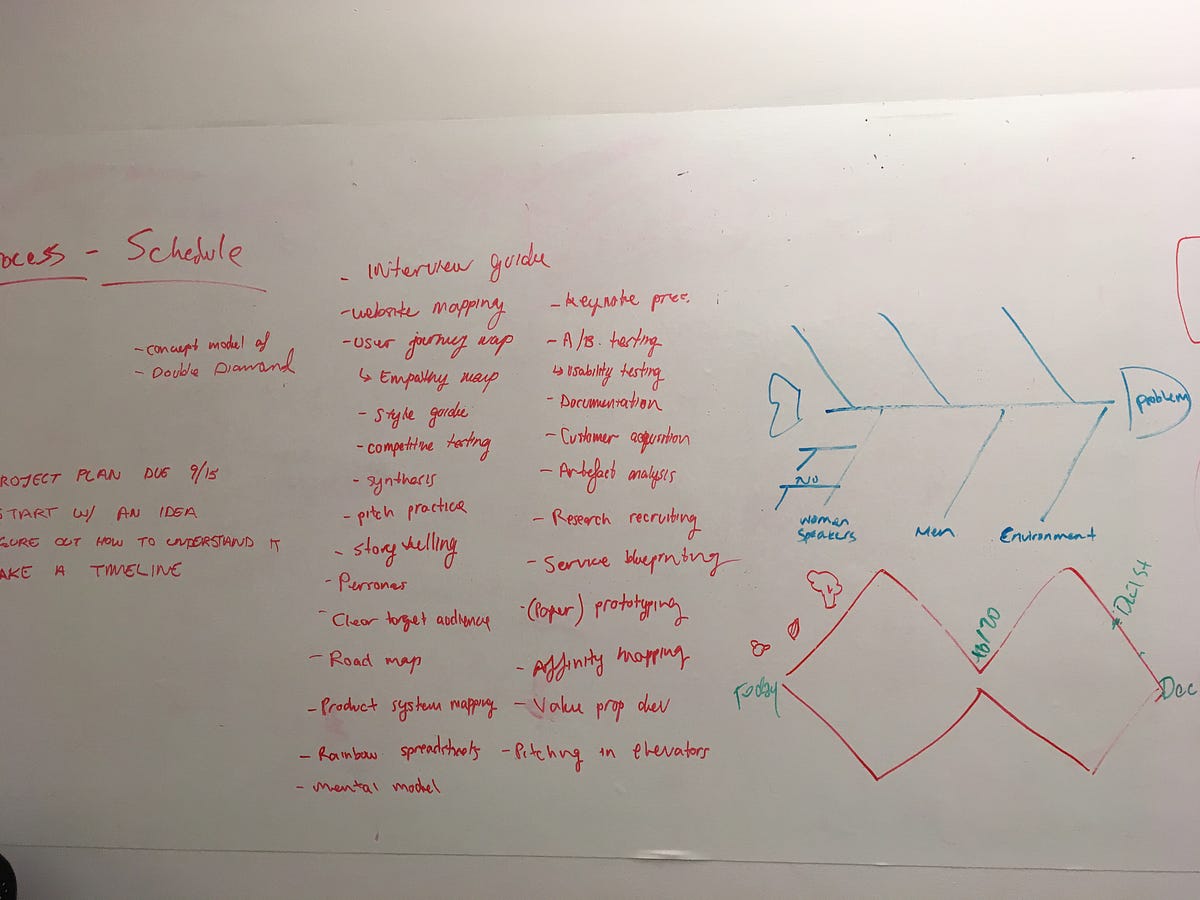 ocess - Schedule
- concept model of
- Double Diamond
ROJECT PLAN DUE 9/15
START W/ AN IDEA
GURE OUT HOW TO UNDERSTAND IT
AKE A TIMELINE
- Interview guide
- website mapping
- User journey map
↳ Empathy map
- Style guide
- competitive testing
- synthesis
- pitch practice
- story telling
- Personas
- Clear target audience
- Road map
- Product system mapping
- Rainbow spreadsheets
- Mental model
- Keynote pres.
- A/B. testing
↳ Usability testing
- Documentation
- Customer acquisition
- Artefact analysis
- Research recruiting
- Service blueprinting
- (Paper) prototyping
- Affinity mapping
- Value prop dev
- Pitching in elevators
problem
NO
women
speakers
Men
Environment
Today
Dec 1st
Dec